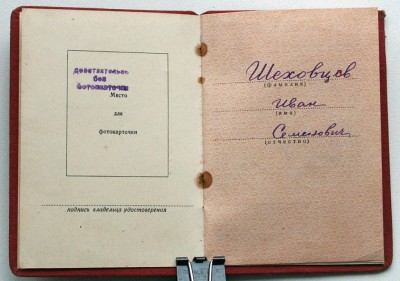 Действителен
без
фотокарточки
Место
для
фотокарточки
подпись владельца удостоверения
Шеховцов
(фамилия)
Иван
(имя)
Семенович
(отчество)